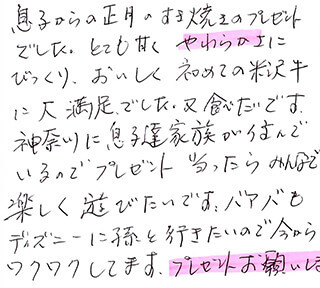 息子からの正月のすき焼きのプレゼント
でした。とても甘く やわらかさに
びっくり、おいしく 初めての米沢牛
に大満足でした。又食べたいです。
神奈川に息子達家族が住んで
いるのでプレゼント 当ったらみんなで
楽しく遊びたいです。バアバも
ディズニーに孫と行きたいので今から
ワクワクしてます。プレゼントお願いしま